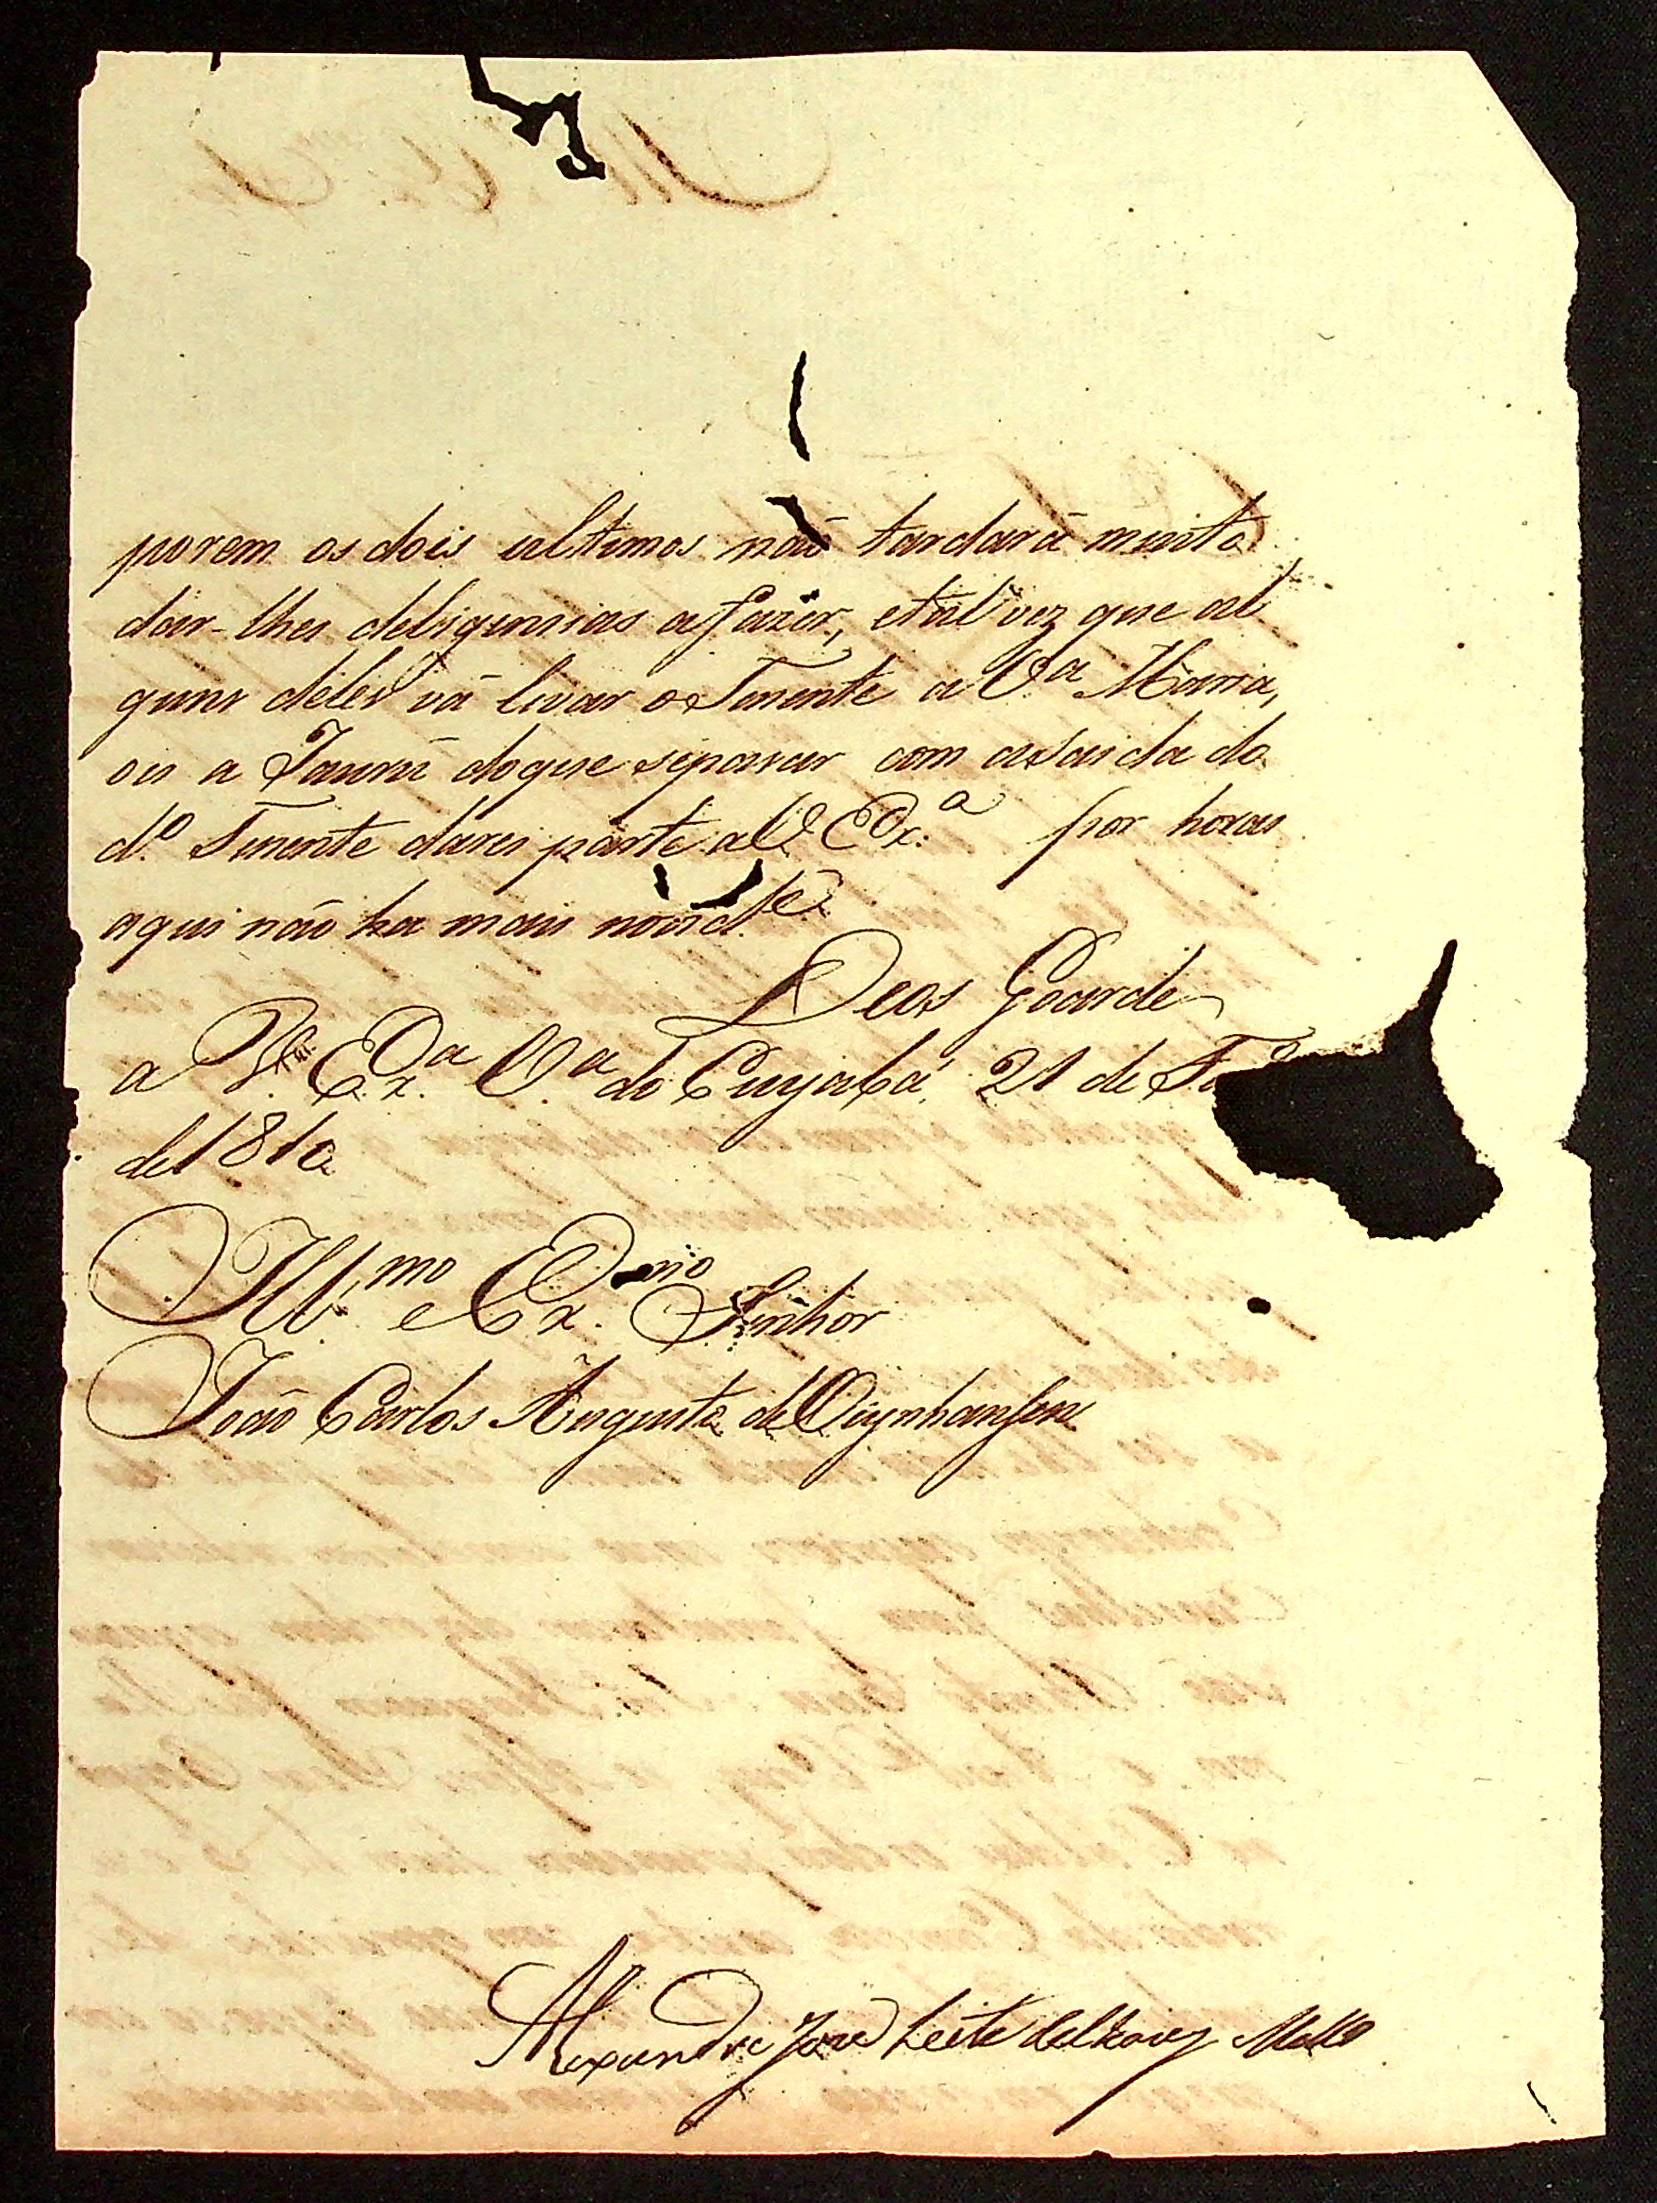 porem os dois ultimos não tardará muito
dar-lhes deligencias afazer, etalvez que al
guns déles vá levar o Tenente a V.ª Maria,
ou a Jaurú doque separar com asaida do
d.º Tenente darei parte a V. Ex.ª por horas
aqui não ha mais novid.e
Deos Goarde
a V. Ex.ª V.ª do Cuyabá 21 de
de 1810
Ill.mo e Ex.mo Senhor
João Carlos Augusto de Oeynhansen
Alexandre Jose Leite de Chaves Mello